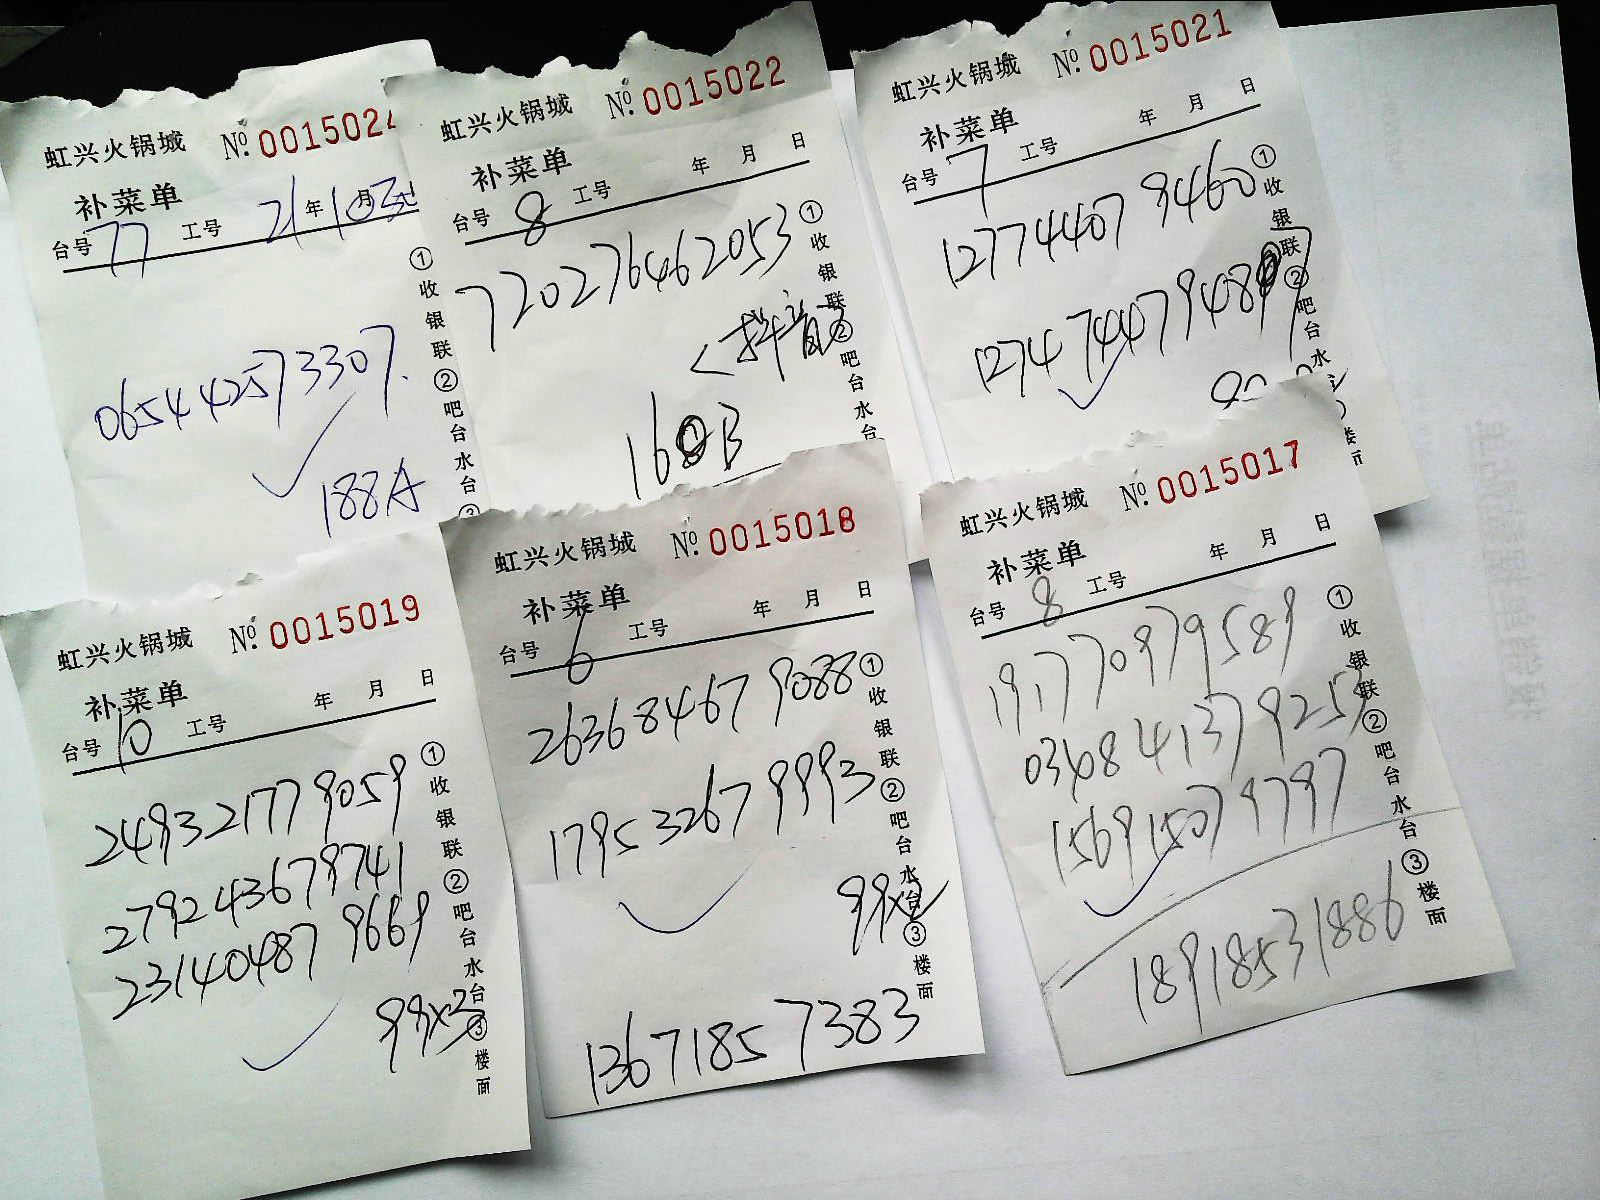 虹兴火锅城 № 0015024
补菜单
台号 77 工号 21年10月3日
065442573307.
188A
①收银联②吧台水台③
虹兴火锅城 № 0015022
补菜单 年 月 日
台号 8 工号
720276462053
<抖音
B
①收银联②吧台水台
虹兴火锅城 № 0015021
补菜单 年 月 日
台号 7 工号
127744079460
①收银联②吧台水
楼面
虹兴火锅城 № 0015019
补菜单
台号 10 工号 年 月 日
249321779059
279243679741
231404879669
99x3
①收银联②吧台水台③楼面
虹兴火锅城 № 0015018
补菜单
台号 6 工号 年 月 日
263684679088
179532679993
99x2
13671857383
①收银联②吧台水台③楼面
虹兴火锅城 № 0015017
补菜单
台号 8 工号 年 月 日
191770979589
0340841379259
156915079797
18918531886
①收银联②吧台水台③楼面